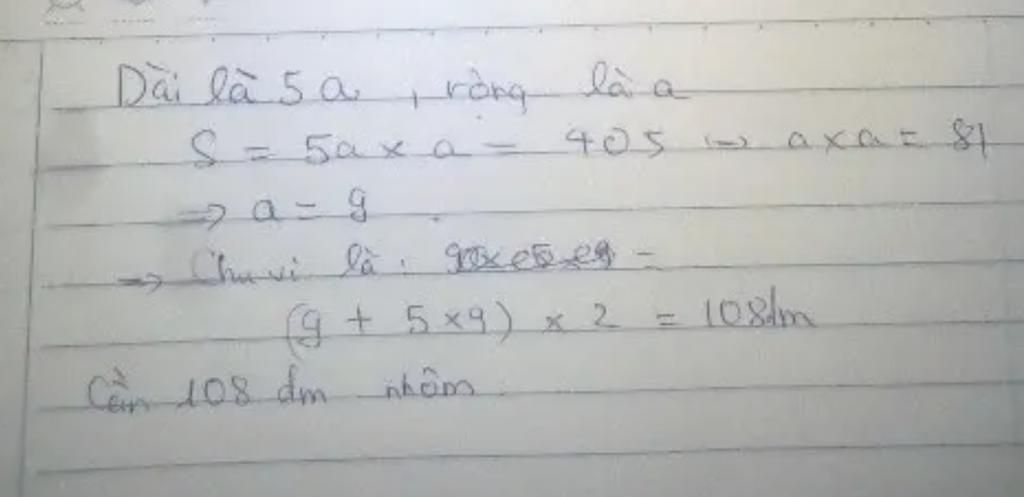 Dài là 5a, rộng là a
S = 5a x a = 405 => a x a = 81
=> a = 9.
=> Chu vi là: =
(9 + 5 x 9) x 2 = 108dm
Cần 108 dm nhôm.